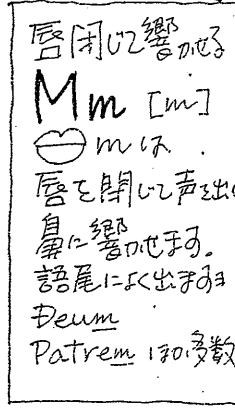 唇閉じて響かせる
Mm [m]
mは.
唇を閉じて声を出し
鼻に響かせます。
語尾によく出ますヨ
Deum
Patrem ほか多数